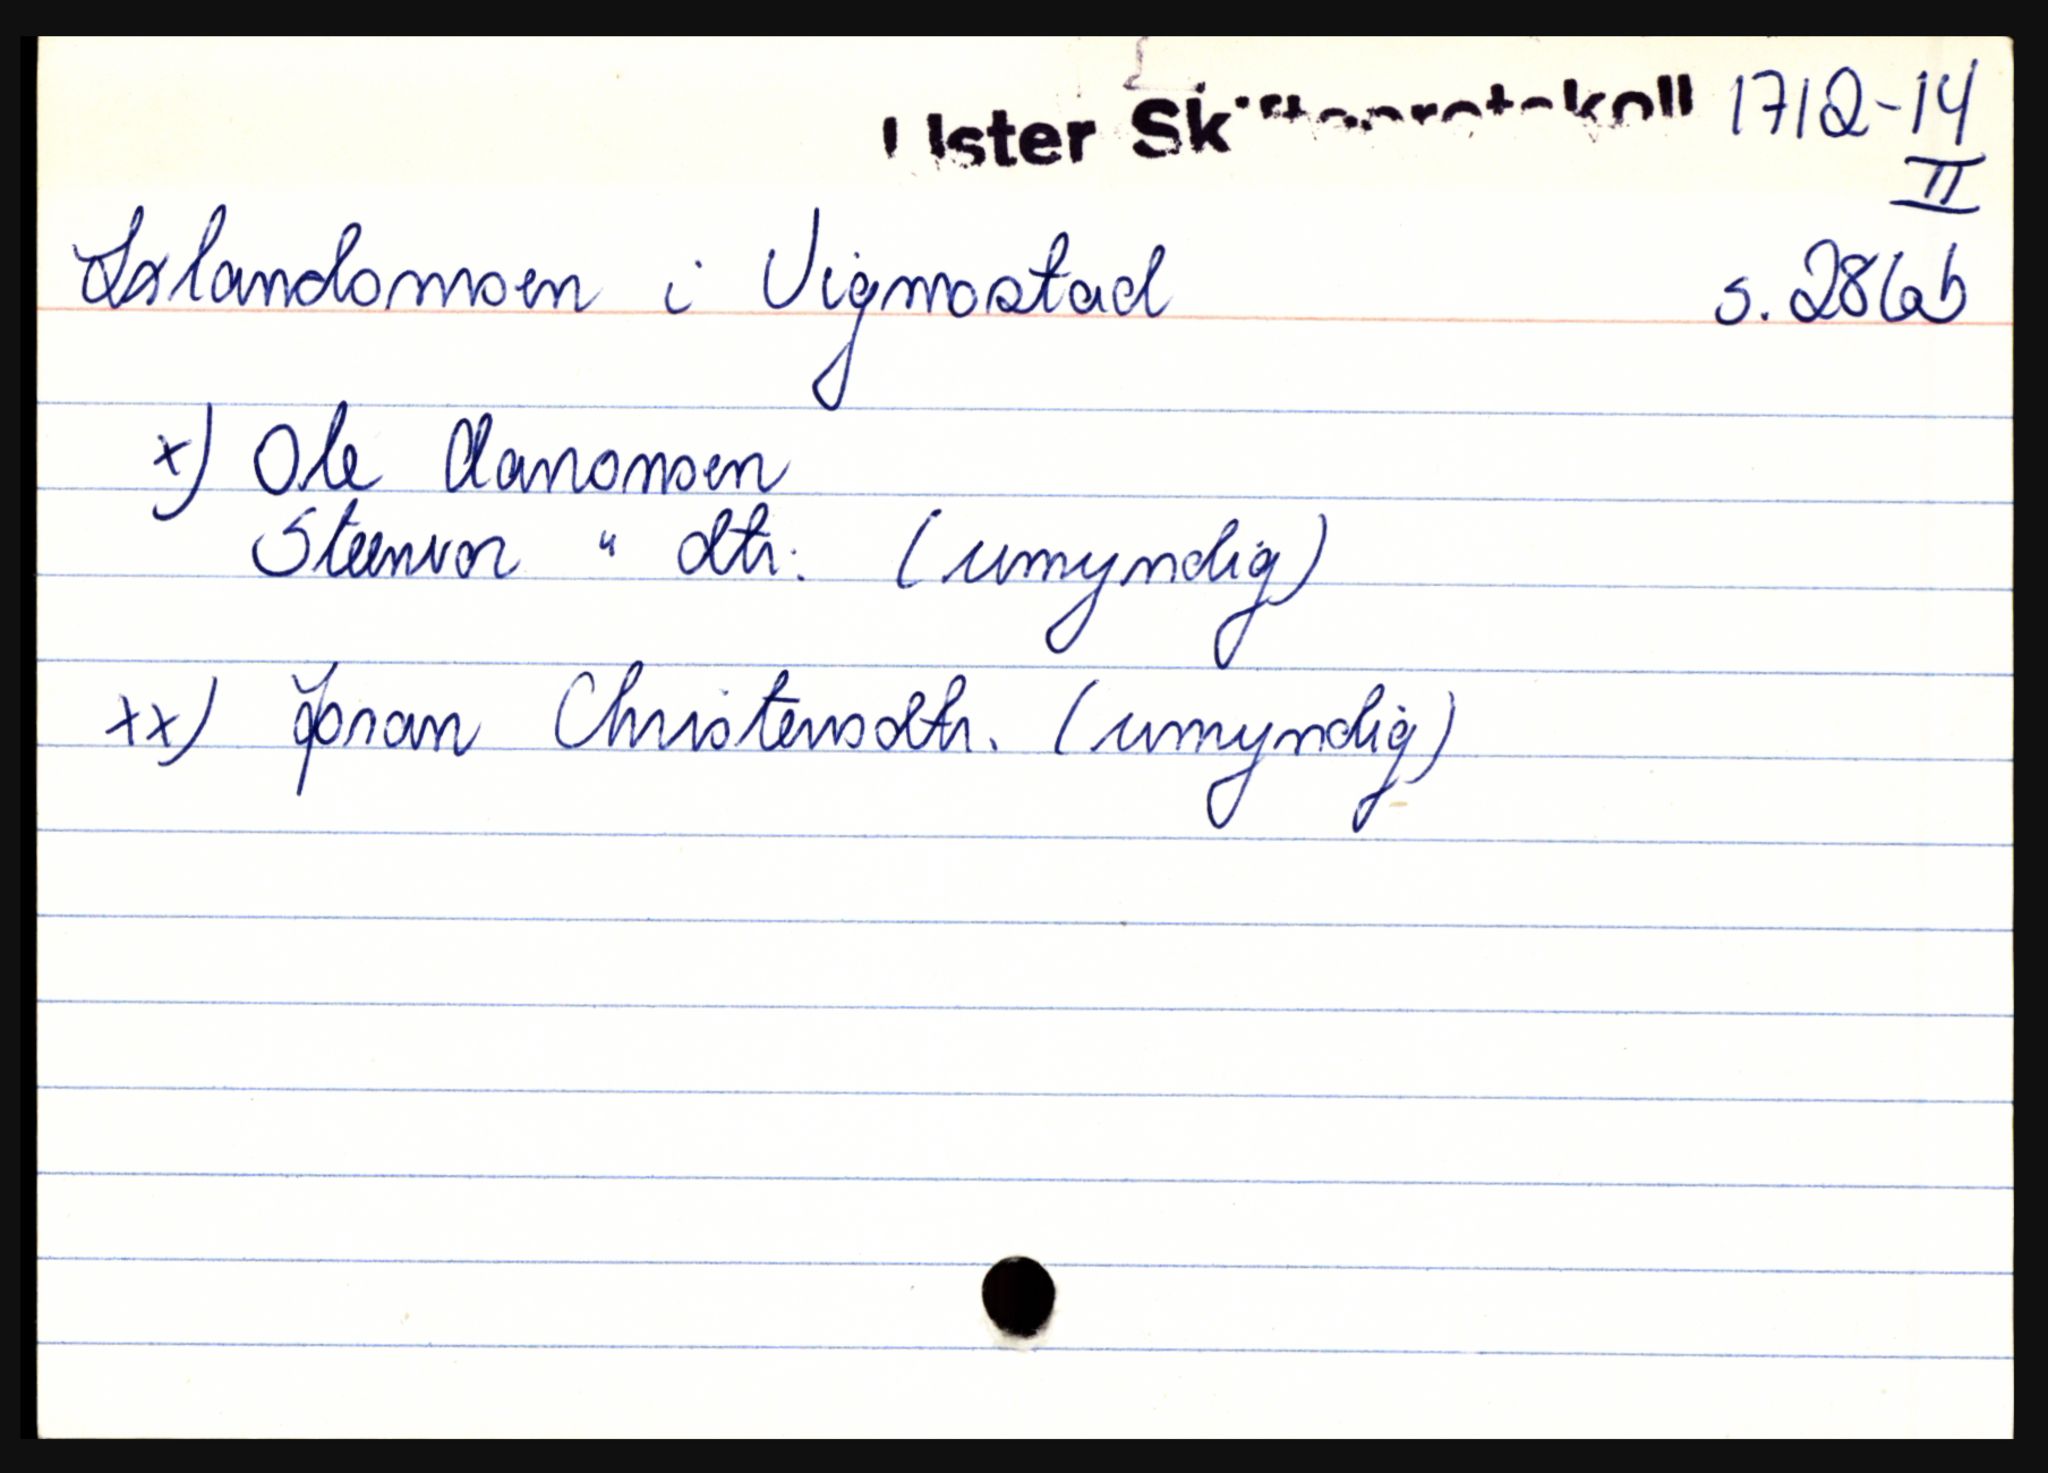 Lister Skifteprotokoll 1712-14
II
Islandsmoen i Vigmostad s. 286ab
x) Ole Aanonsen
Steenvor " dtr. (umyndig)
xx) Joran Christensdtr. (umyndig)